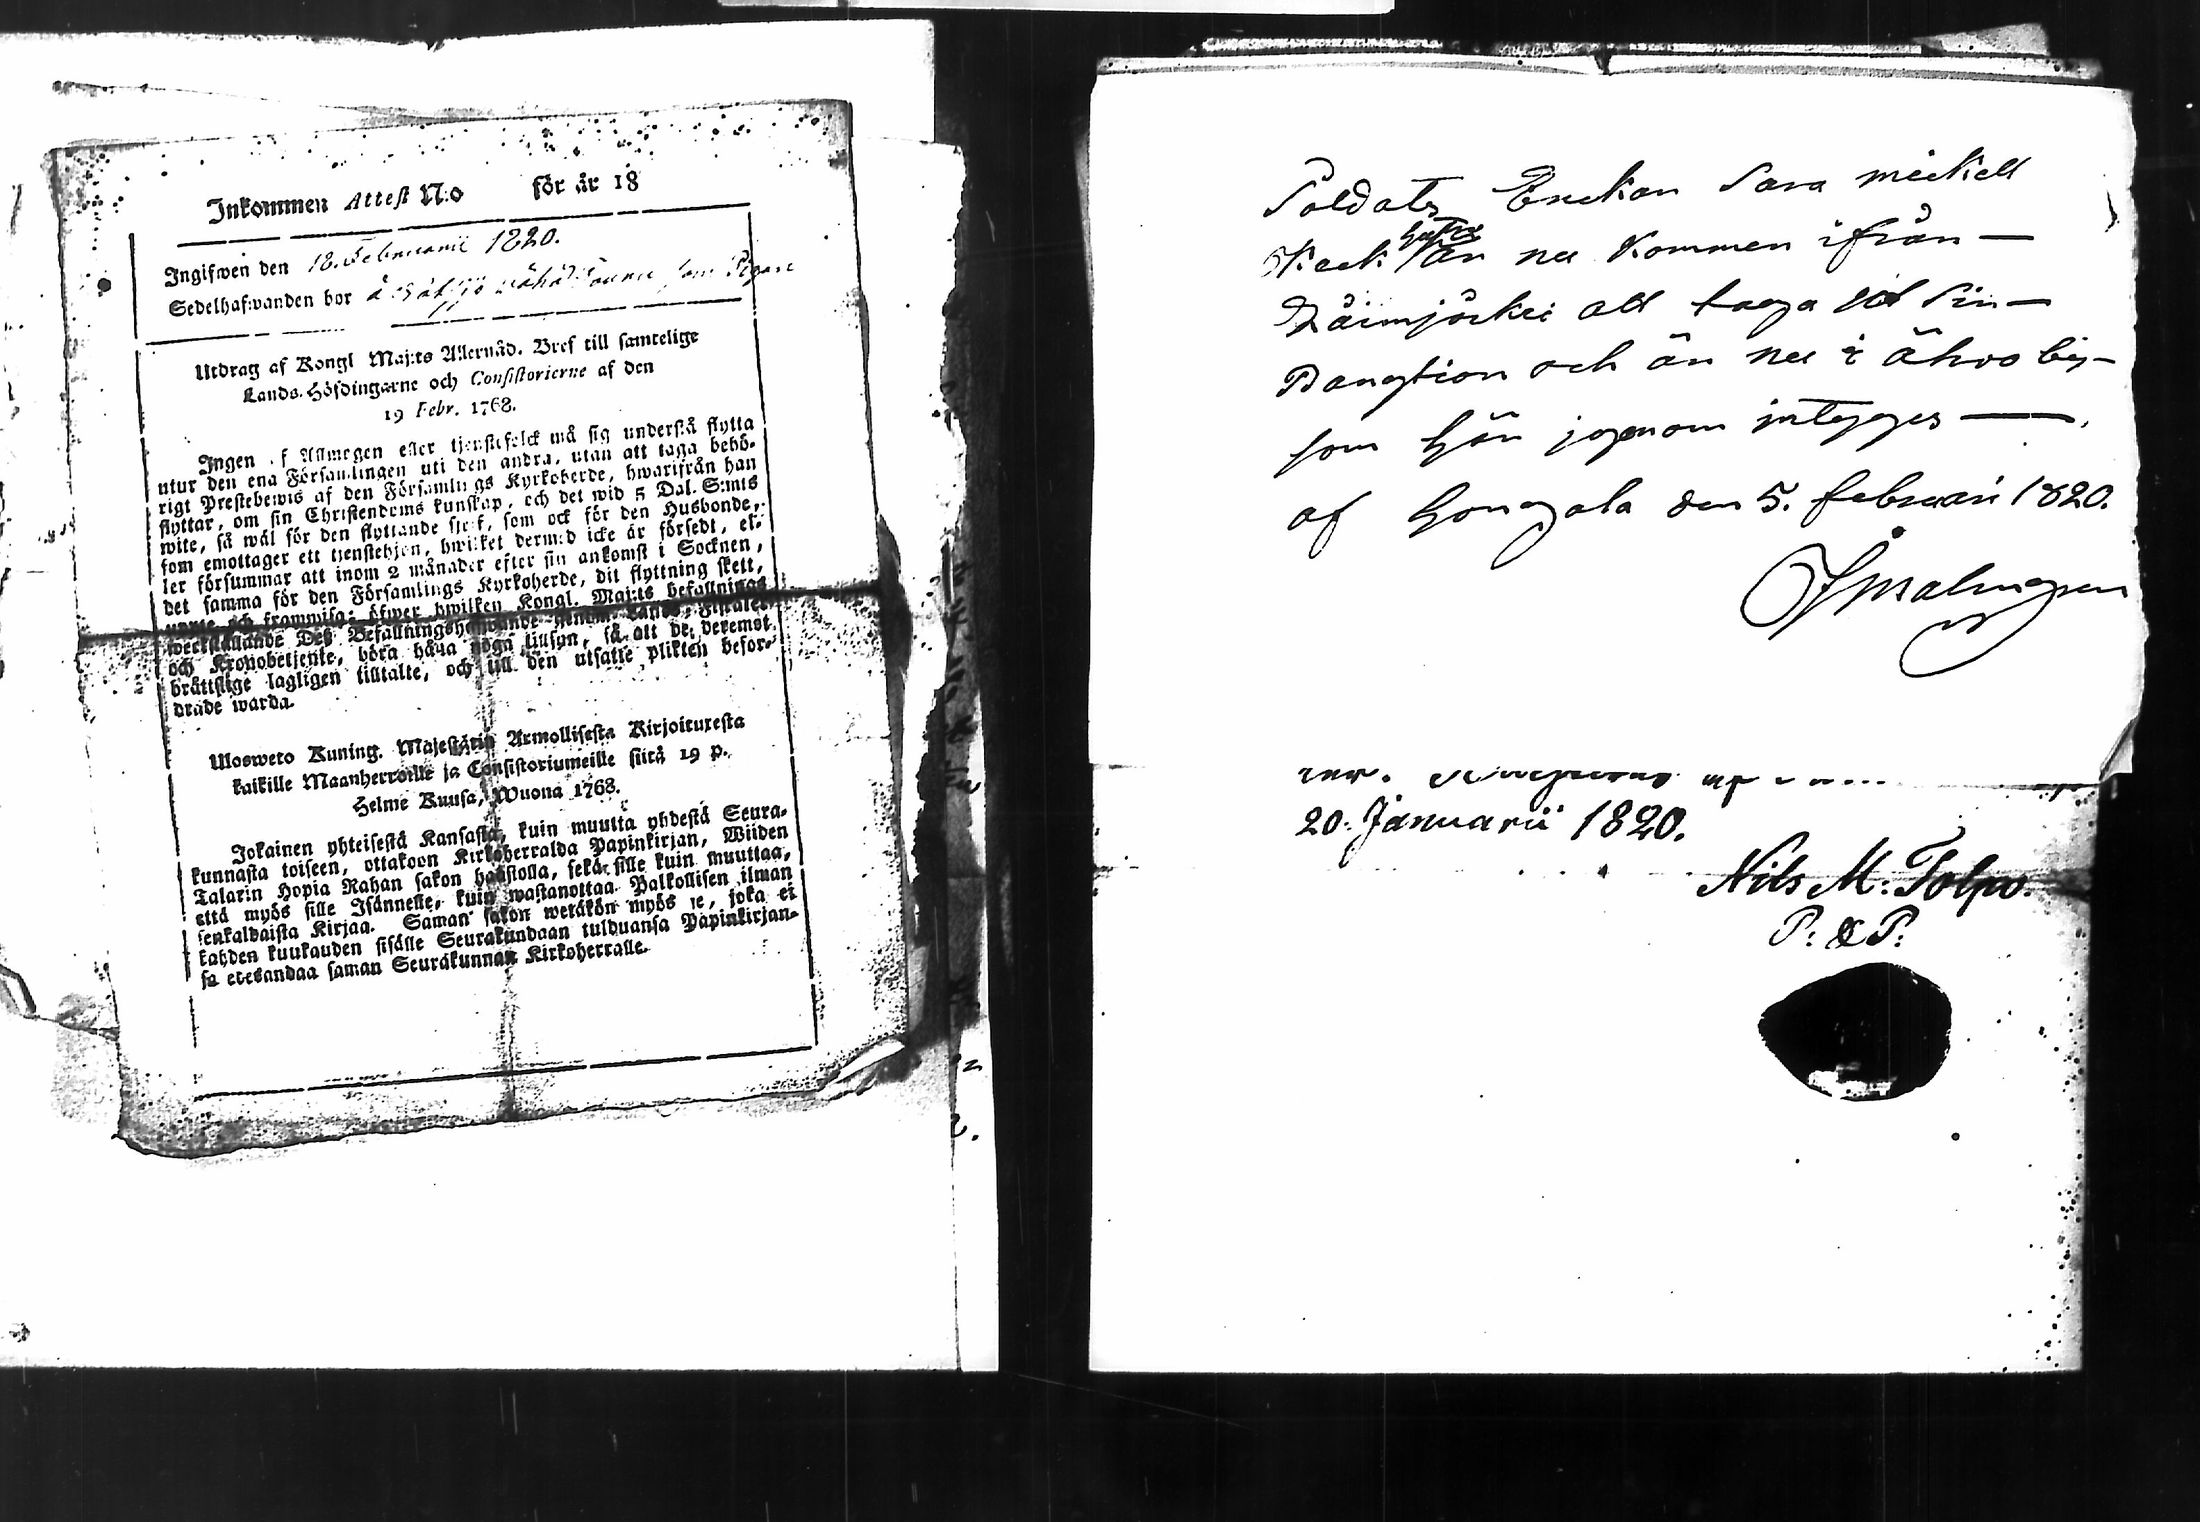 Inkommen Attest N:o för år 18
Ingifwen den 18. Februarii 1820.
Sedelhafwanden bor å
Utdrag af Kongl Maj:ts Allernåd. Bref till samtelige
Lands-Höfdingarne och Consistorierne af den
19 Febr. 1768.
Ingen af Allmogen eller tjenstefolck må sig understå flytta
utur den ena Församlingen uti den andra, utan att taga behö-
rigt Prestebewis af den Församlings Kyrkoherde, hwarifrån han
flyttar, om sin Christendoms kunskap, och det wid 5 Dal. S:mts
wite, så wäl för den flyttande sjelf, som ock för den Husbonde,
som emottager ett tjenstehjon, hwilket dermed icke är försedt, el-
ler försummar att inom 2 månader efter sin ankomst i Socknen,
det samma för den Församlings Kyrkoherde, dit flyttning skett,
och framwisa; öfwer hwilken Kongl. Maj:ts befallnings
werkställande Deß Befallningshafwande genom Lands-Fiskaler
och Kronobetjente, böra hafwa noga tillsyn, så att de deremot
bråttslige lagligen tilltalte, och till den utsatte plikten befor-
drade warda.
Ulosweto Kuning. Majestätin Armollisesta Kirjoituresta
kaikille Maanherroille ja Consistoriumeille siitä 19 p.
Helme Kuusa, Wuona 1768.
Jokainen yhteisestä Kansasta, kuin muutta yhdestä Seura-
kunnasta toiseen, ottakoon Kirkoherralda Papinkirjan, Wiiden
Talarin Hopia Rahan sakon haastolla, sekä sille kuin muuttaa,
että myös sille Isännelle, kuin wastanottaa Palkollisen ilman
senkaldaista Kirjaa. Saman sakon wetäkön myös se, joka ei
kahden kuukauden sisälle Seurakundaan tulduansa Papinkirjan-
sa edesandaa saman Seurakunnan Kirkoherralle.
Soldats Enckan Sara mickell
är nu kommen ifrån —
att taga sin —
och än nu i
som
af hongola den 5. februari 1820.
JMalmgren
20. Januarii 1820.
Nils M. Tolpo.
P: & P: